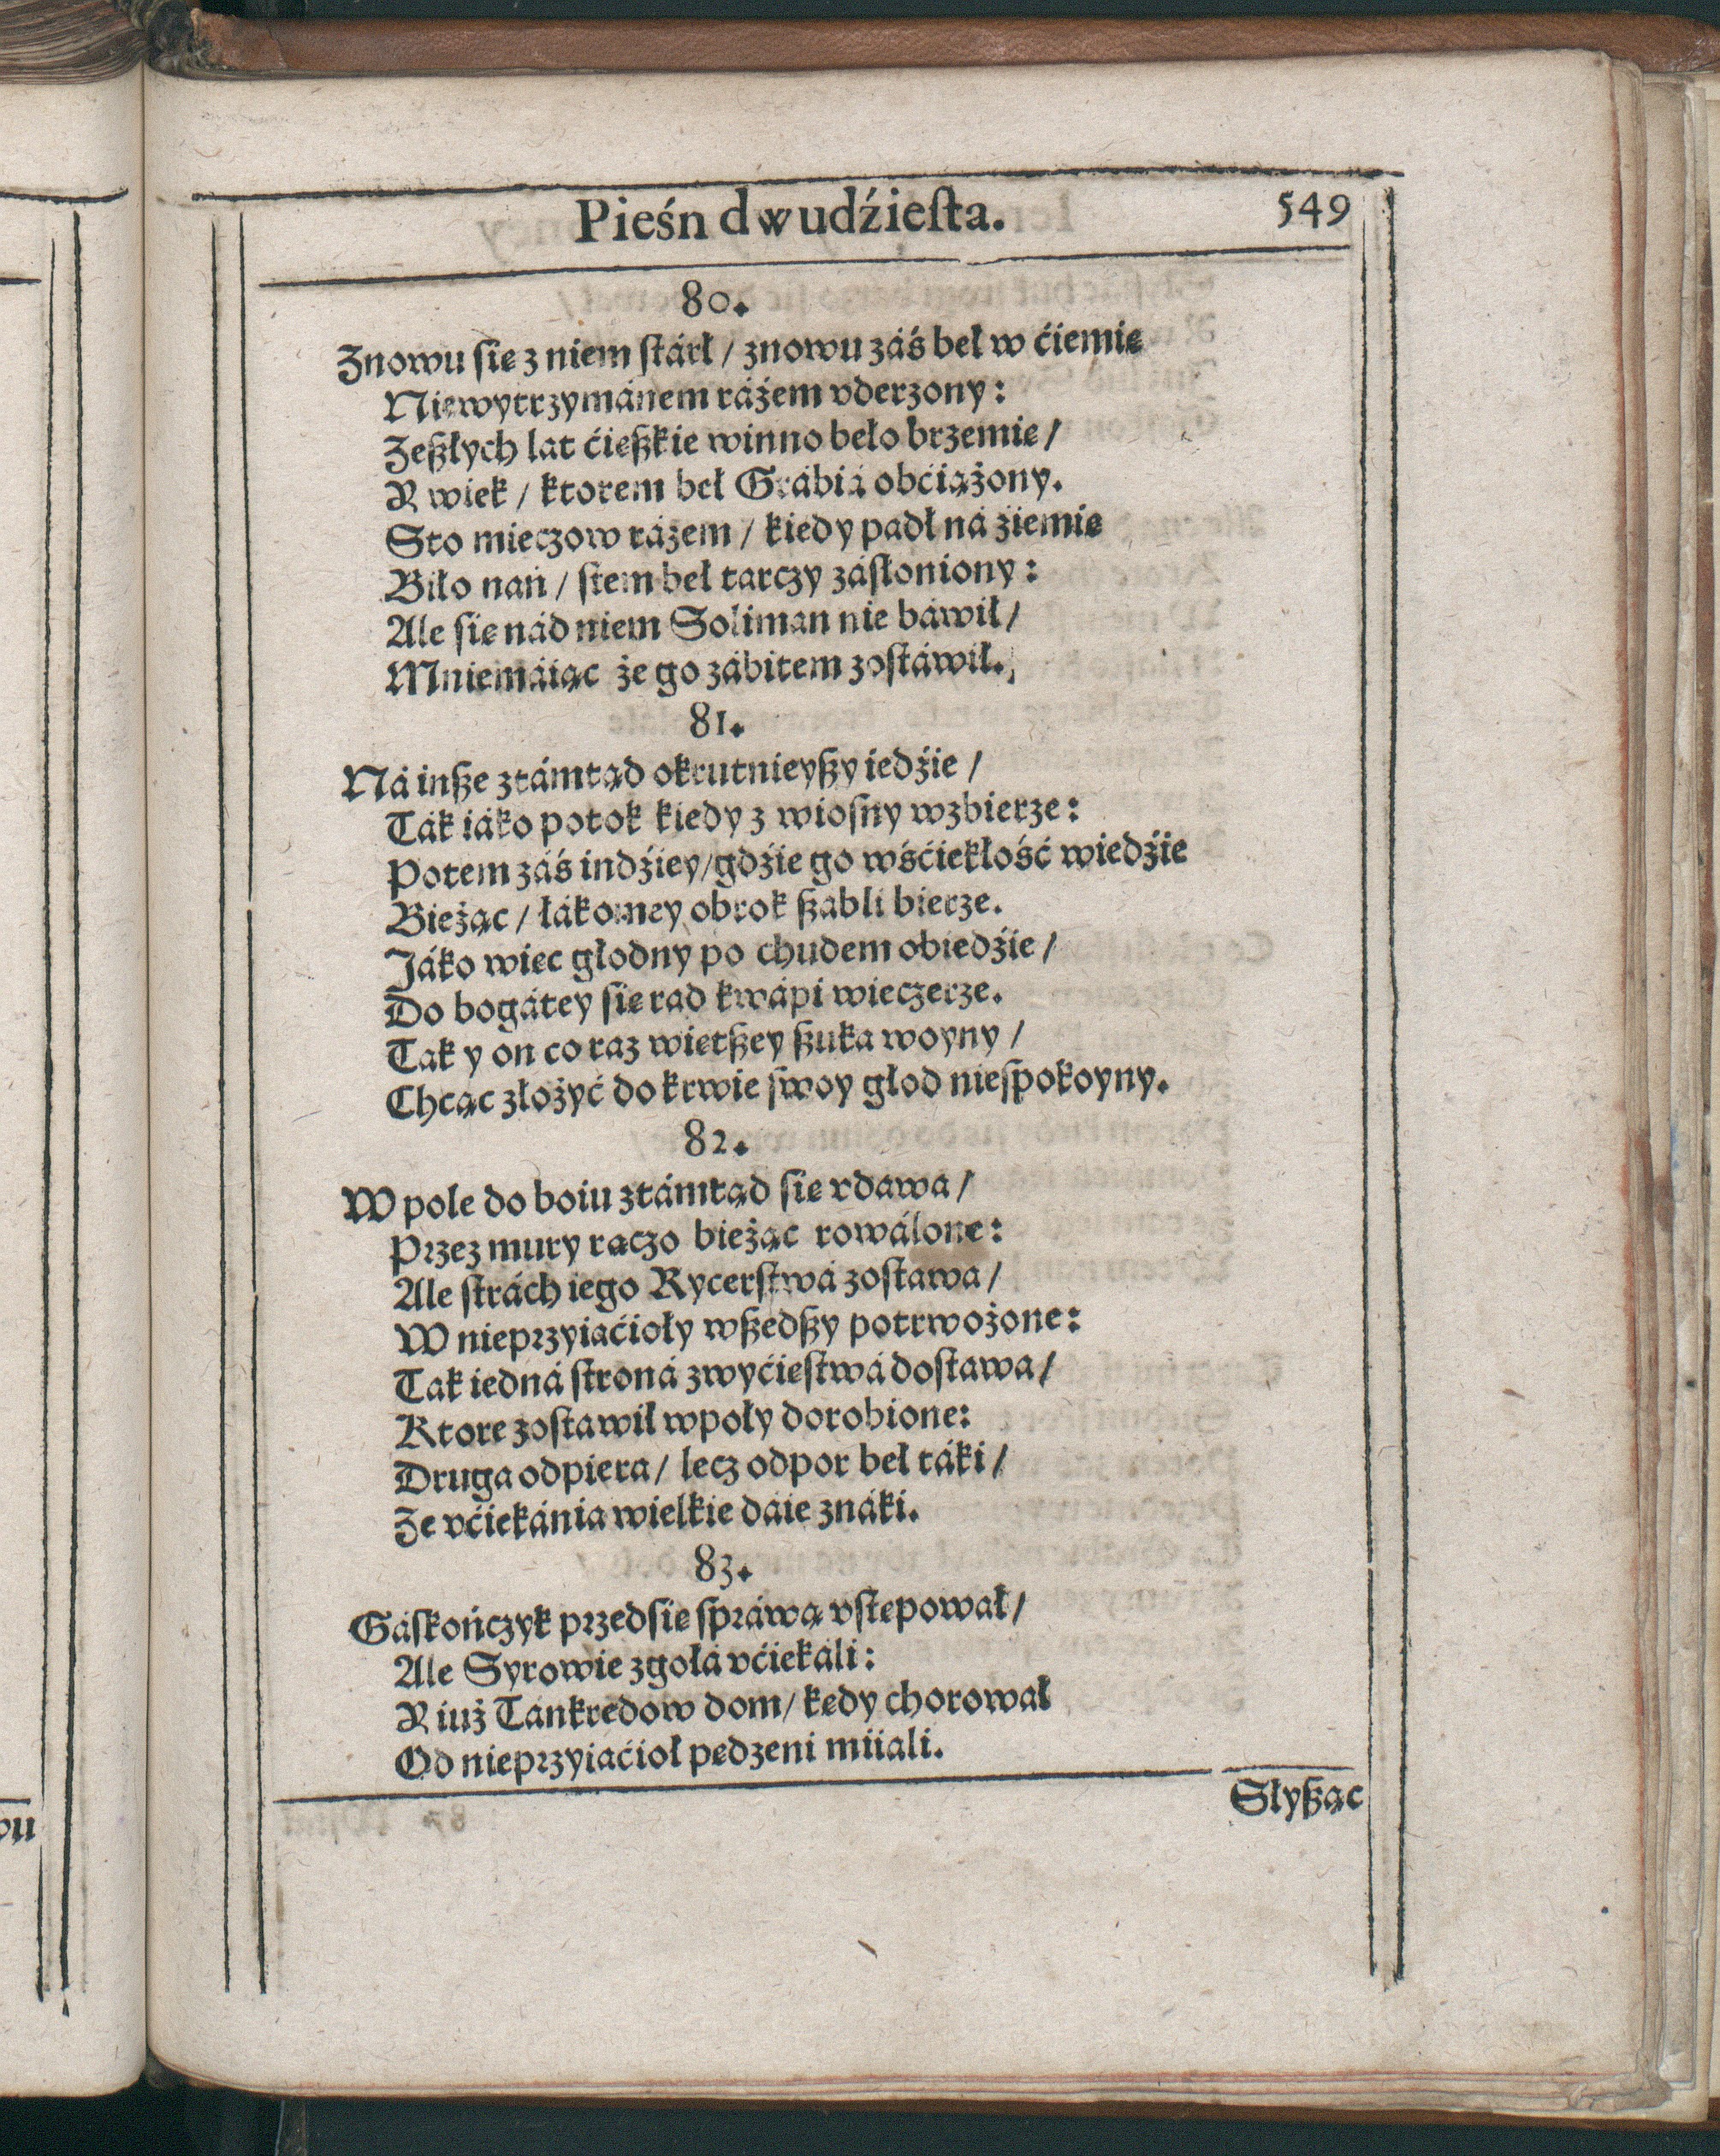 Pieśn dwudźieſta. 549
80.
Znowu ſie z niem ſtárł / znowu záś beł w ćiemię
Niewytrzymánem ráżem vderzony:
Zeßłych lat ćießkie winno beło brzemię /
Y wiek / ktorem beł Grábiá obćiążony.
Sto mieczow rázem / kiedy padł ná źiemię
Biło nań / ſtem beł tarczy záſłoniony:
Ale ſię nád niem Soliman nie báwił /
Mniemáiąc że go zábitem zoſtáwił.
81.
Ná inße ztámtąd okrutnieyßy iedźie /
Ták iáko potok kiedy z wioſny wzbierze:
Potem záś indźiey / gdźie go wśćiekłość wiedźie
Bieżąc / łákomey obrok ßabli bierze.
Jáko wiec głodny po chudem obiedźie /
Do bogátey ſię rad kwápi wieczerze.
Tak y on co raz wietßey ßuka woyny /
Chcąc złożyć do krwie ſwoy głod nieſpokoyny.
82.
W pole do boiu ztámtąd ſię vdawa /
Przez mury raczo bieżąc rowálone:
Ale ſtrách iego Rycerſtwá zoſtawa /
W nieprzyiaćioły wßedßy potrwożone:
Tak iedná ſtroná zwyćieſtwá doſtawa /
Ktore zoſtawił wpoły dorobione:
Druga odpiera / lecz odpor beł táki /
Ze vćiekánia wielkie dáie znáki.
83.
Gáſkończyk przedſię ſpráwą vſtępował /
Ale Syrowie zgołá vćiekáli:
Y iuż Tánkredow dom / kędy chorował
Od nieprzyiaćioł pędzeni miiali.
Słyßąc
wu